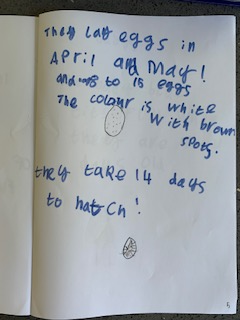 They lay eggs in
April and May!
to 16 eggs
The colour is white
With brown
spots.
they take 14 days
to hatch!
5